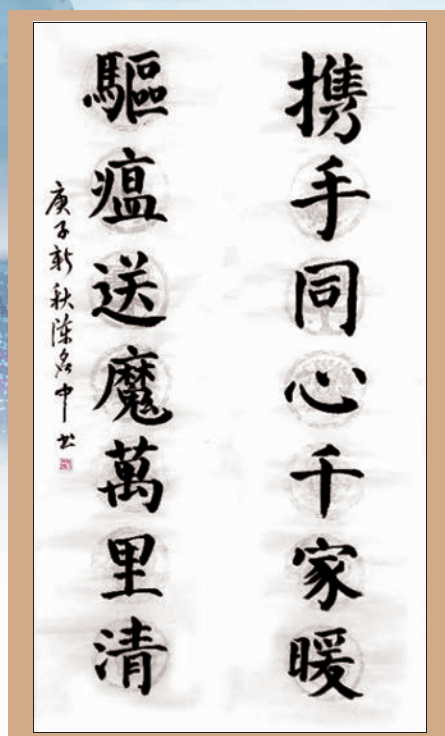 携手同心千家暖
驅瘟送魔萬里清
庚子新秋陈名中书